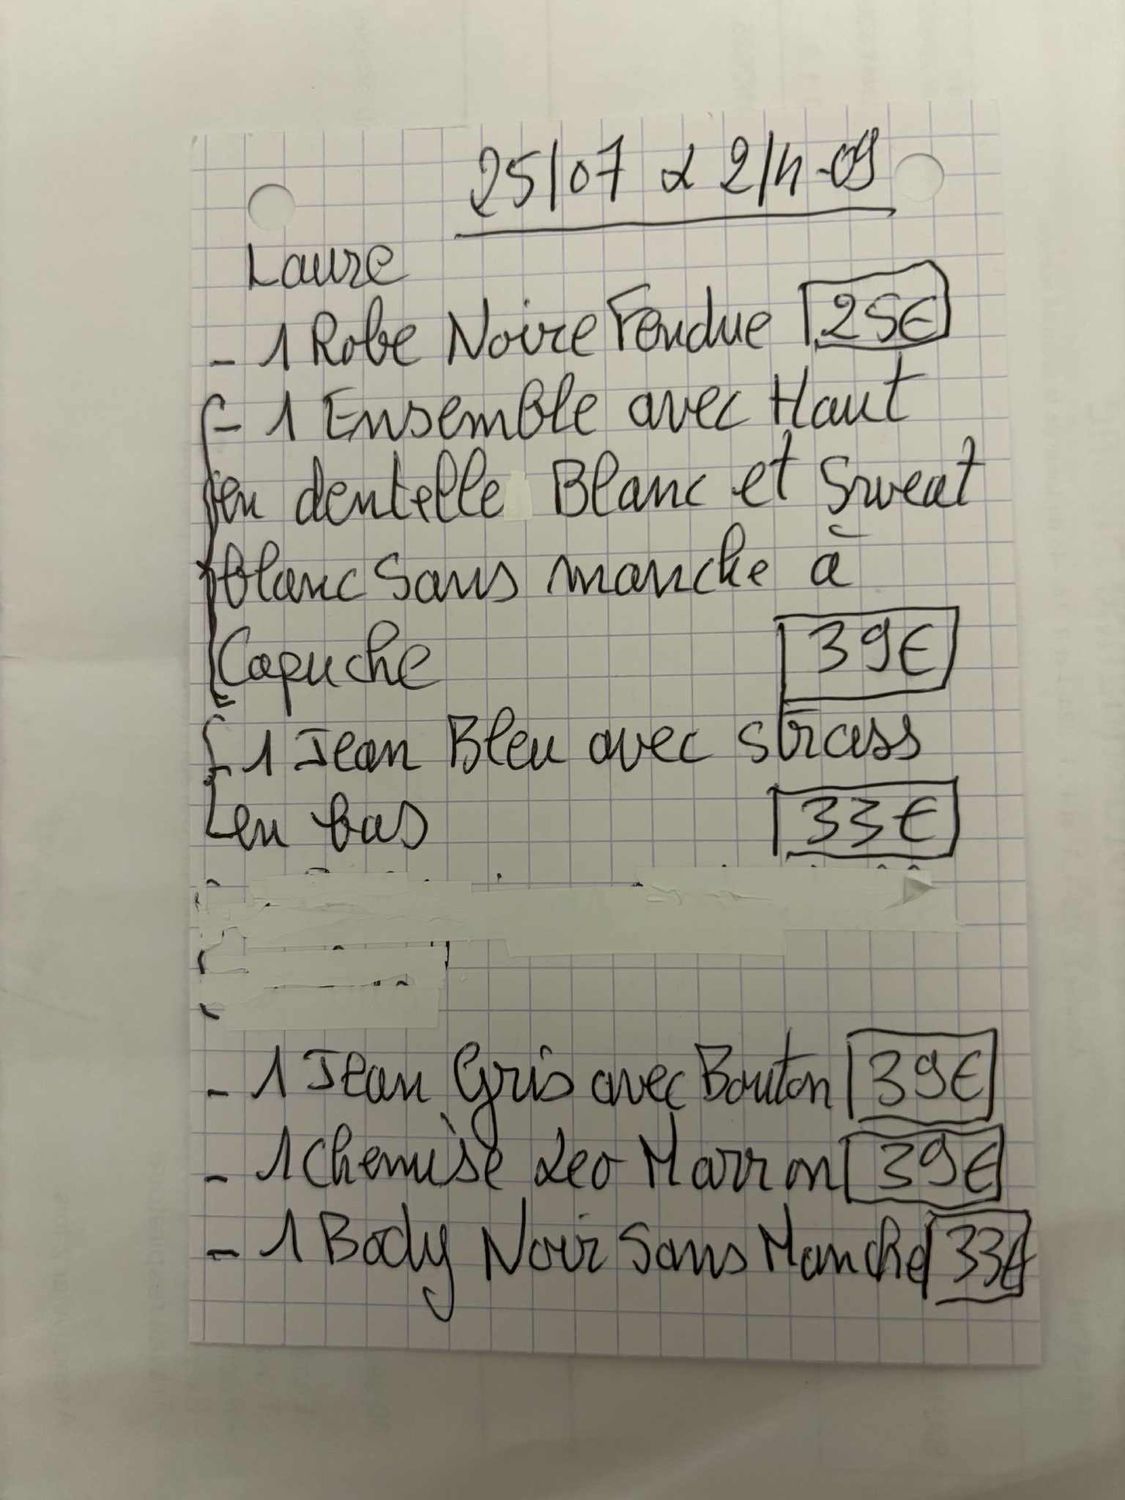 25/07 à 21h-09
Laure
- 1 Robe Noire Fendue 25€
- 1 Ensemble avec Haut
en dentelle Blanc et Sweat
blanc Sans manche à
Capuche 39€
- 1 Jean Bleu avec strass
en bas 33€
- 1 Jean Gris avec Bouton 39€
- 1 Chemise Leo Marron 39€
- 1 Body Noir Sans Manche 33€